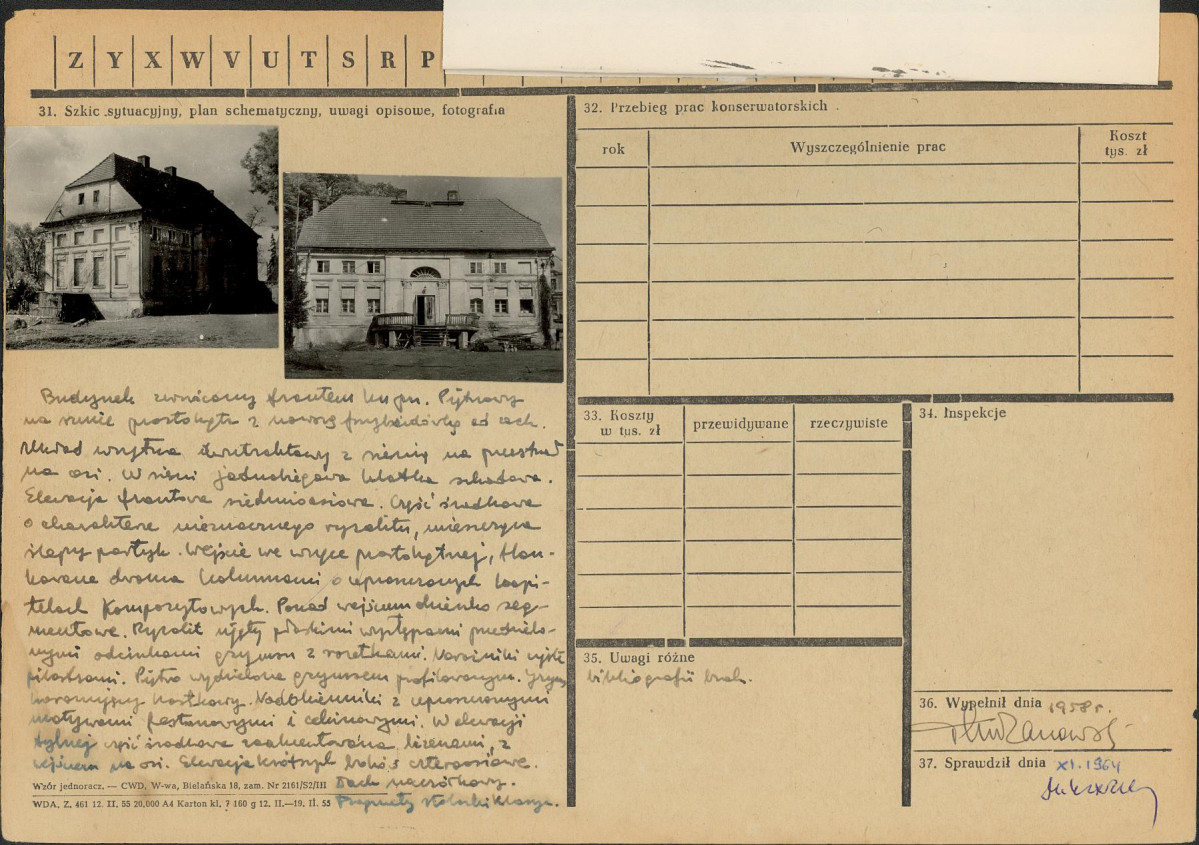 Z Y X W V U T S R P
31. Szkic sytuacyjny, plan schematyczny, uwagi opisowe, fotografia
Budynek zwrócony frontem ku pn. Piętrowy
na rzucie prostokąta z nowszą przybudówką od zach.
Układ wnętrza dwutraktowy z sienią na przestrzał
na osi. W sieni jednobiegowa klatka schodowa.
Elewacja frontowa siedmioosiowa. Część środkowa
o charakterze nieznacznego ryzalitu, mieszcząca
ślepy portyk. Wejście we wnęce prostokątnej, flan-
kowane dwoma kolumnami o uproszczonych kapi-
telach kompozytowych. Ponad wejściem okienko seg-
mentowe. Ryzalit ujęty płaskimi występami przedzielo-
nymi odcinkami gzymsu z rozetkami. Narożniki ujęte
pilastrami. Piętro wydzielone gzymsem profilowanym. Gzyms
koronujący kostkowy. Nadokienniki z uproszczonymi
motywami festonowymi i cekinowymi. W elewacji
tylnej część środkowa zaakcentowana lizenami, z
wejściem na osi. Elewacje krótszych boków czteroosiowe.
Dach naczółkowy.
Fragmenty stolarki klasyc.
Wzór jednoracz. — CWD, W-wa, Bielańska 18, zam. Nr 2161/S2/III
WDA. Z. 461 12. II. 55 20.000 A4 Karton kl. 7 160 g 12. II.—19. II. 55
32. Przebieg prac konserwatorskich
rok
Wyszczególnienie prac
Koszt
tys. zł
33. Koszty
w tys. zł
przewidywane
rzeczywiste
34. Inspekcje
35. Uwagi różne
bibliografii brak.
36. Wypełnił dnia 1958 r.
37. Sprawdził dnia XI. 1964